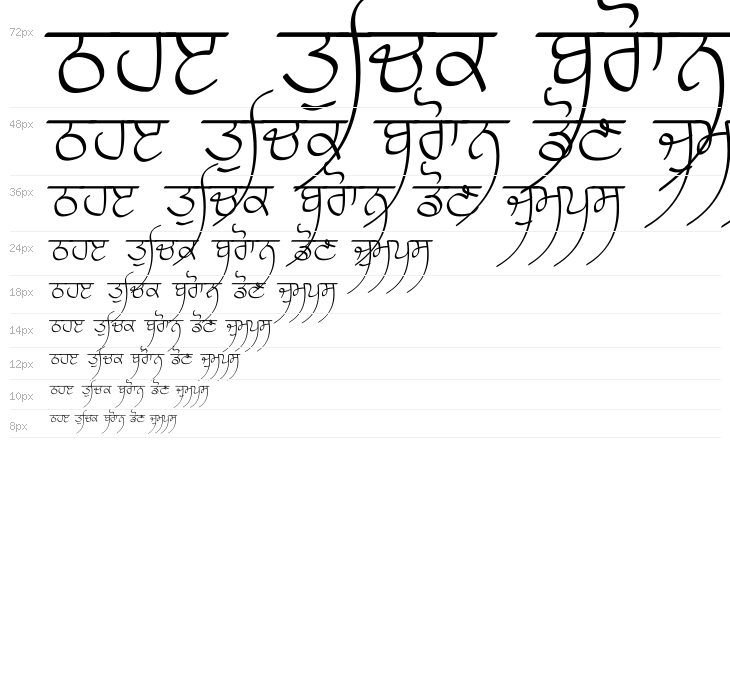 72px ਠਹੲ ਤੁਚਿਕ ਬਰੋਾਨ
48px ਠਹੲ ਤੁਚਿਕ ਬਰੋਾਨ ਡੋਣ ਜੁਮ
36px ਠਹੲ ਤੁਚਿਕ ਬਰੋਾਨ ਡੋਣ ਜੁਮਪਸ
24px ਠਹੲ ਤੁਚਿਕ ਬਰੋਾਨ ਡੋਣ ਜੁਮਪਸ
18px ਠਹੲ ਤੁਚਿਕ ਬਰੋਾਨ ਡੋਣ ਜੁਮਪਸ
14px ਠਹੲ ਤੁਚਿਕ ਬਰੋਾਨ ਡੋਣ ਜੁਮਪਸ
12px ਠਹੲ ਤੁਚਿਕ ਬਰੋਾਨ ਡੋਣ ਜੁਮਪਸ
10px ਠਹੲ ਤੁਚਿਕ ਬਰੋਾਨ ਡੋਣ ਜੁਮਪਸ
8px ਠਹੲ ਤੁਚਿਕ ਬਰੋਾਨ ਡੋਣ ਜੁਮਪਸ